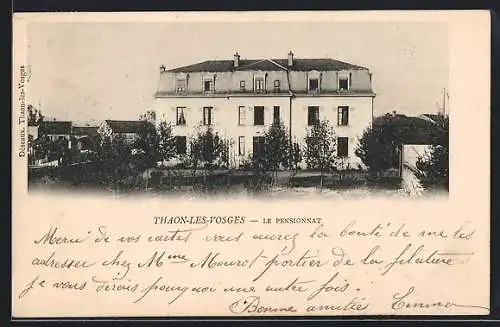 Déseaux. Thaon-les-Vosges
THAON-LES-VOSGES — LE PENSIONNAT
Merci de vos cartes vous aurez la bonté de me les
adresser chez Mme Mauro portier de la filature
je vous dirais pourquoi une autre fois.
Bonne amitiés Emma